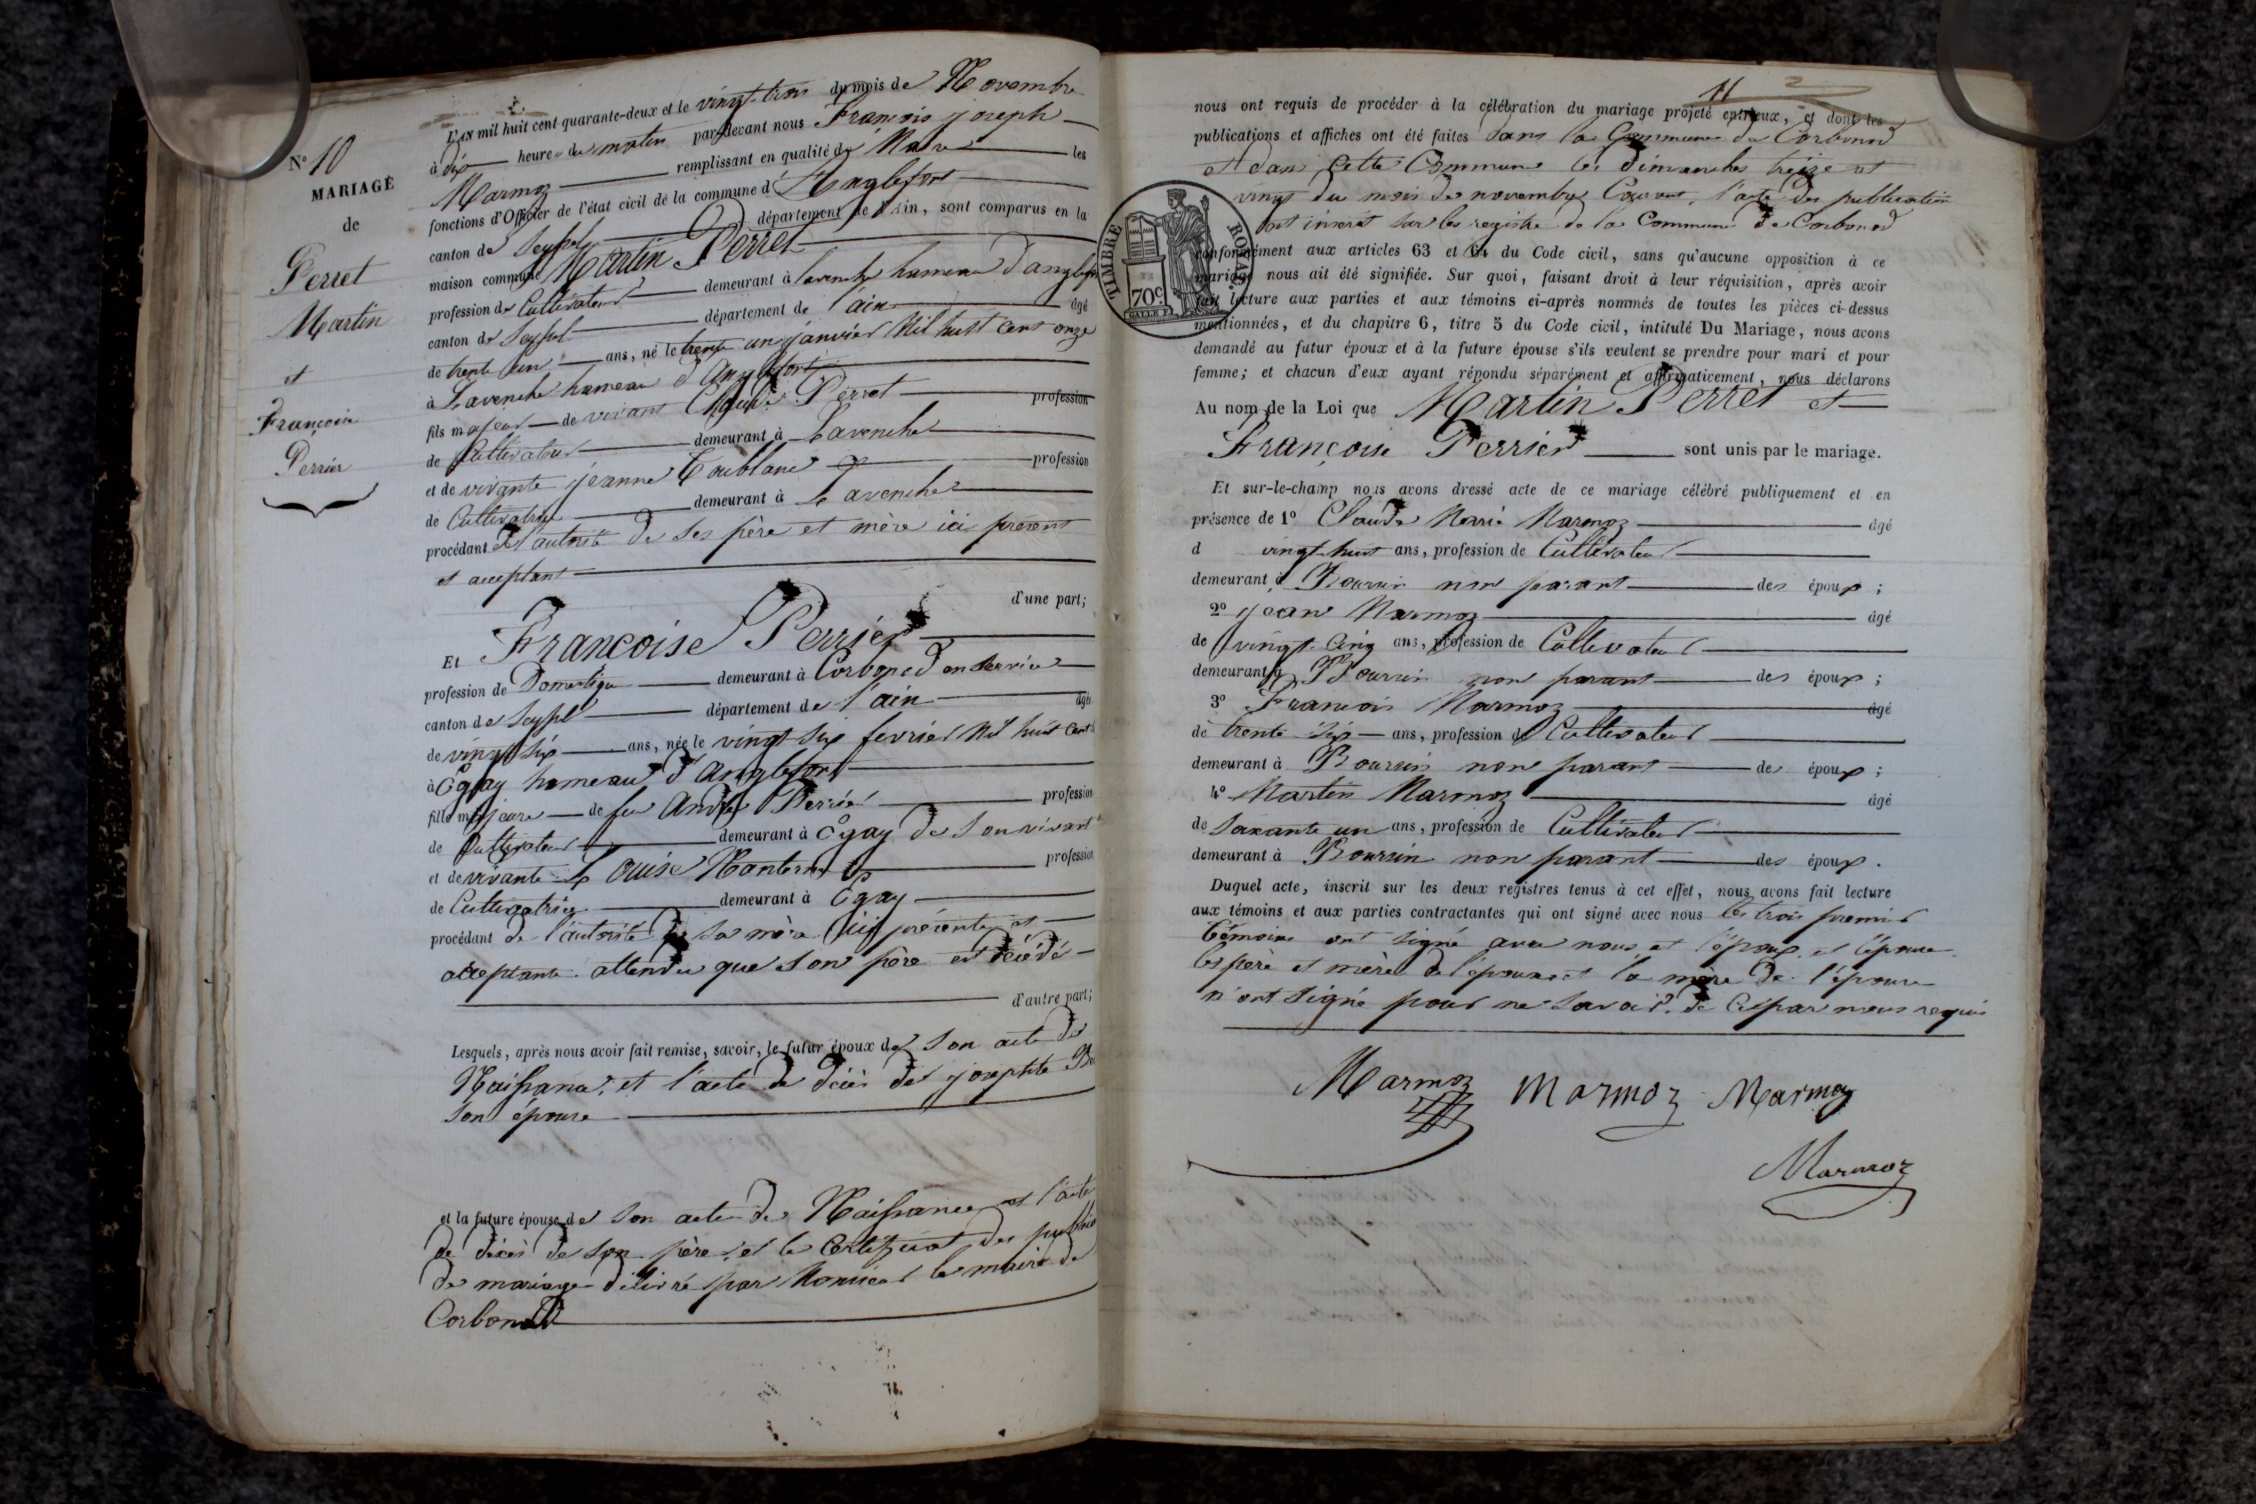 N° 10
MARIAGE
de
Perret
Martin
et
Françoise
Perrier
L'an mil huit cent quarante-deux et le vingt-trois du mois de Novembre
à dix heure du matin par-devant nous François joseph
Marmoz remplissant en qualité de Maire les
fonctions d'Officier de l'état civil de la commune d'Anglefort
canton de Seyssel département de l'Ain, sont comparus en la
maison commune Martin Perret
profession de Cultivateur demeurant à Lavenche hameau d'anglefort
canton de Seyssel département de l'ain âgé
de trente un ans, né le trente un janvier Mil huit cent onze
à Lavenche hameau d'Anglefort
fils majeur de vivant Claude Perret profession
de Cultivateur demeurant à Lavenche
et de vivante jeanne profession
de Cultivatrice demeurant à Lavenche
procédant de l'autorité de ses père et mère ici présent
et acceptant
d'une part;
Et Françoise Perrier
profession de Domestique demeurant à Corbonod en service
canton de Seyssel département de l'ain âgée
de vingt six ans, née le vingt six fevrier Mil huit cent
à Egay hameau d'Anglefort
fille majeure de feu André Perrier profession
de Cultivateur demeurant à Egay de son vivant
et de vivante Louise profession
de Cultivatrice demeurant à Egay
procédant de l'autorité de sa mère ici présente et
acceptante. attendu que son père est décédé
d'autre part;
Lesquels, après nous avoir fait remise, savoir, le futur époux de son acte de
Naissance, et l'acte de décès de josephte
son épouse
et la future épouse de son acte de Naissance et l'acte
de décès de son père, et le Certificat des
de mariage délivré par Monsieur le maire de
Corbonod
11
nous ont requis de procéder à la célébration du mariage projeté entr'eux, et dont les
publications et affiches ont été faites dans la Commune de Corbonod
et dans cette Commune les dimanches treize et
vingt du mois de novembre Courant, l'acte des publication
est inseré sur les registre de la Commune de Corbonod
TIMBRE ROYAL.
70c
conformément aux articles 63 et 64 du Code civil, sans qu'aucune opposition à ce
mariage nous ait été signifiée. Sur quoi, faisant droit à leur réquisition, après avoir
fait lecture aux parties et aux témoins ci-après nommés de toutes les pièces ci-dessus
mentionnées, et du chapitre 6, titre 5 du Code civil, intitulé Du Mariage, nous avons
demandé au futur époux et à la future épouse s'ils veulent se prendre pour mari et pour
femme; et chacun d'eux ayant répondu séparément et affirmativement, nous déclarons
Au nom de la Loi que Martin Perret et
Françoise Perrier sont unis par le mariage.
Et sur-le-champ nous avons dressé acte de ce mariage célébré publiquement et en
présence de 1° Claude Marie Marmoz âgé
d vingt-huit ans, profession de Cultivateur
demeurant à Boursin non parant des époux;
2° jean Marmoz âgé
de vingt-cinq ans, profession de Cultivateur
demeurant à Boursin non parant des époux;
3° François Marmoz âgé
de trente-six ans, profession de Cultivateur
demeurant à Boursin non parant des époux;
4° Martin Marmoz âgé
de Soixante un ans, profession de Cultivateur
demeurant à Boursin non parant des époux.
Duquel acte, inscrit sur les deux registres tenus à cet effet, nous avons fait lecture
aux témoins et aux parties contractantes qui ont signé avec nous les trois premier
témoins ont signé avec nous, et l'époux, et l'épouse
les père et mère de l'époux et la mère de l'épouse
n'ont signé pour ne savoir. de ce par nous requis
Marmoz Marmoz Marmoz
Marmoz